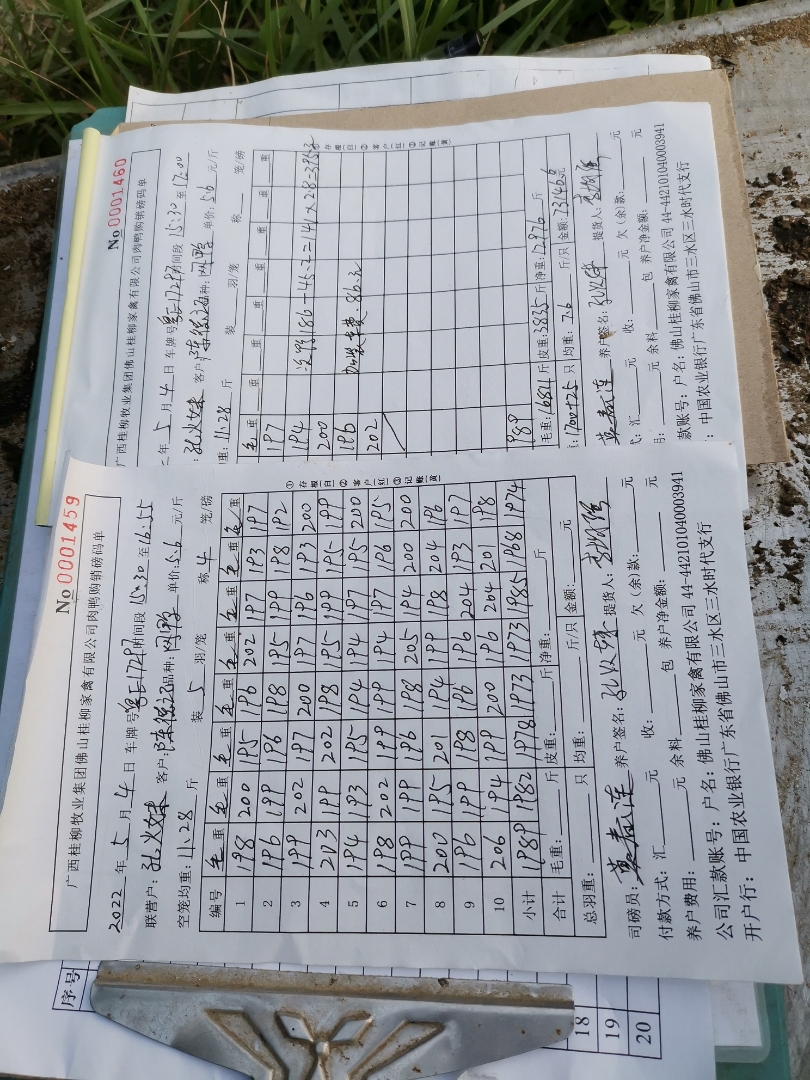 No 0001459
广西桂柳牧业集团佛山桂柳家禽有限公司肉鸭购销磅码单
2022 年 5 月 4 日 车牌号 时间段 15:30 至 16:55
联营户: 孔火妹 客户: 品种: 单价: 5.6 元/斤
空笼均重: 11.28 斤 装 5 羽/笼 称 4 笼/磅
编号 毛重 毛重 毛重 毛重 毛重 毛重 毛重 毛重
1 198 200 195 196 202 197 193 197
2 196 199 196 198 195 199 198 192
3 199 202 197 200 197 196 193 200
4 203 199 202 198 195 199 195 199
5 194 193 195 194 194 197 195 200
6 198 202 199 199 194 197 196 195
7 199 199 196 198 205 194 200 200
8 200 195 201 194 199 198 204 196
9 196 199 198 196 196 204 193 197
10 206 194 199 200 196 204 201 198
小计 1989 1982 1978 1973 1973 1985 1968 1974
合计 毛重: 斤 皮重: 斤 净重: 斤
总羽重: 只 均重: 斤/只 金额: 元
①存根 白 ②客户 红 ③记账 黄
司磅员: 养户签名: 孔火妹 提货人:
付款方式: 汇 元 收: 元 欠(余)款: 元
养户费用: 元 余料 包 养户净金额: 元
公司汇款账号: 户名: 佛山桂柳家禽有限公司 44-442101040003941
开户行: 中国农业银行广东省佛山市三水区三水时代支行
No 0001460
广西桂柳牧业集团佛山桂柳家禽有限公司肉鸭购销磅码单
年 5 月 4 日 车牌号 时间段 15:30 至 17:00
: 孔火妹 客户: 品种: 单价: 5.6 元/斤
重: 11.28 斤 装 羽/笼 称 笼/磅
毛重 重 重 重 重 重 重 重
197
194
200
196
202
989
186-46.2=141×28=3953
加 费: 86元
毛重: 16811 斤 皮重: 3835 斤 净重: 12976 斤
: 1700+25 只 均重: 7.6 斤/只 金额: 73146.6 元
①存根 白 ②客户 红 ③记账 黄
养户签名: 孔火妹 提货人:
: 汇 元 收: 元 欠(余)款: 元
: 元 余料 包 养户净金额: 元
款账号: 户名: 佛山桂柳家禽有限公司 44-442101040003941
: 中国农业银行广东省佛山市三水区三水时代支行
序号
18
19
20